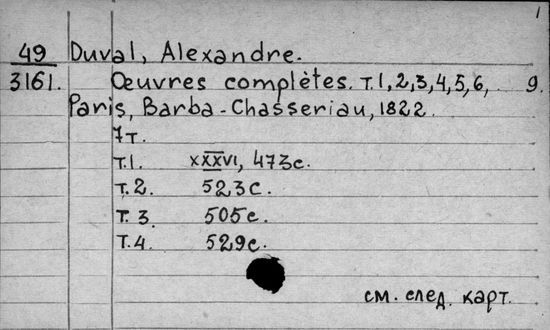 1
49 Duval, Alexandre.
3161. Œuvres complètes. т. 1, 2, 3, 4, 5, 6, 9.
Paris, Barba-Chasseriau, 1822.
7 т.
т. 1. XXXVI, 473 с.
т. 2. 523 с.
т. 3. 505 с.
т. 4. 529 с.
см. след. карт.